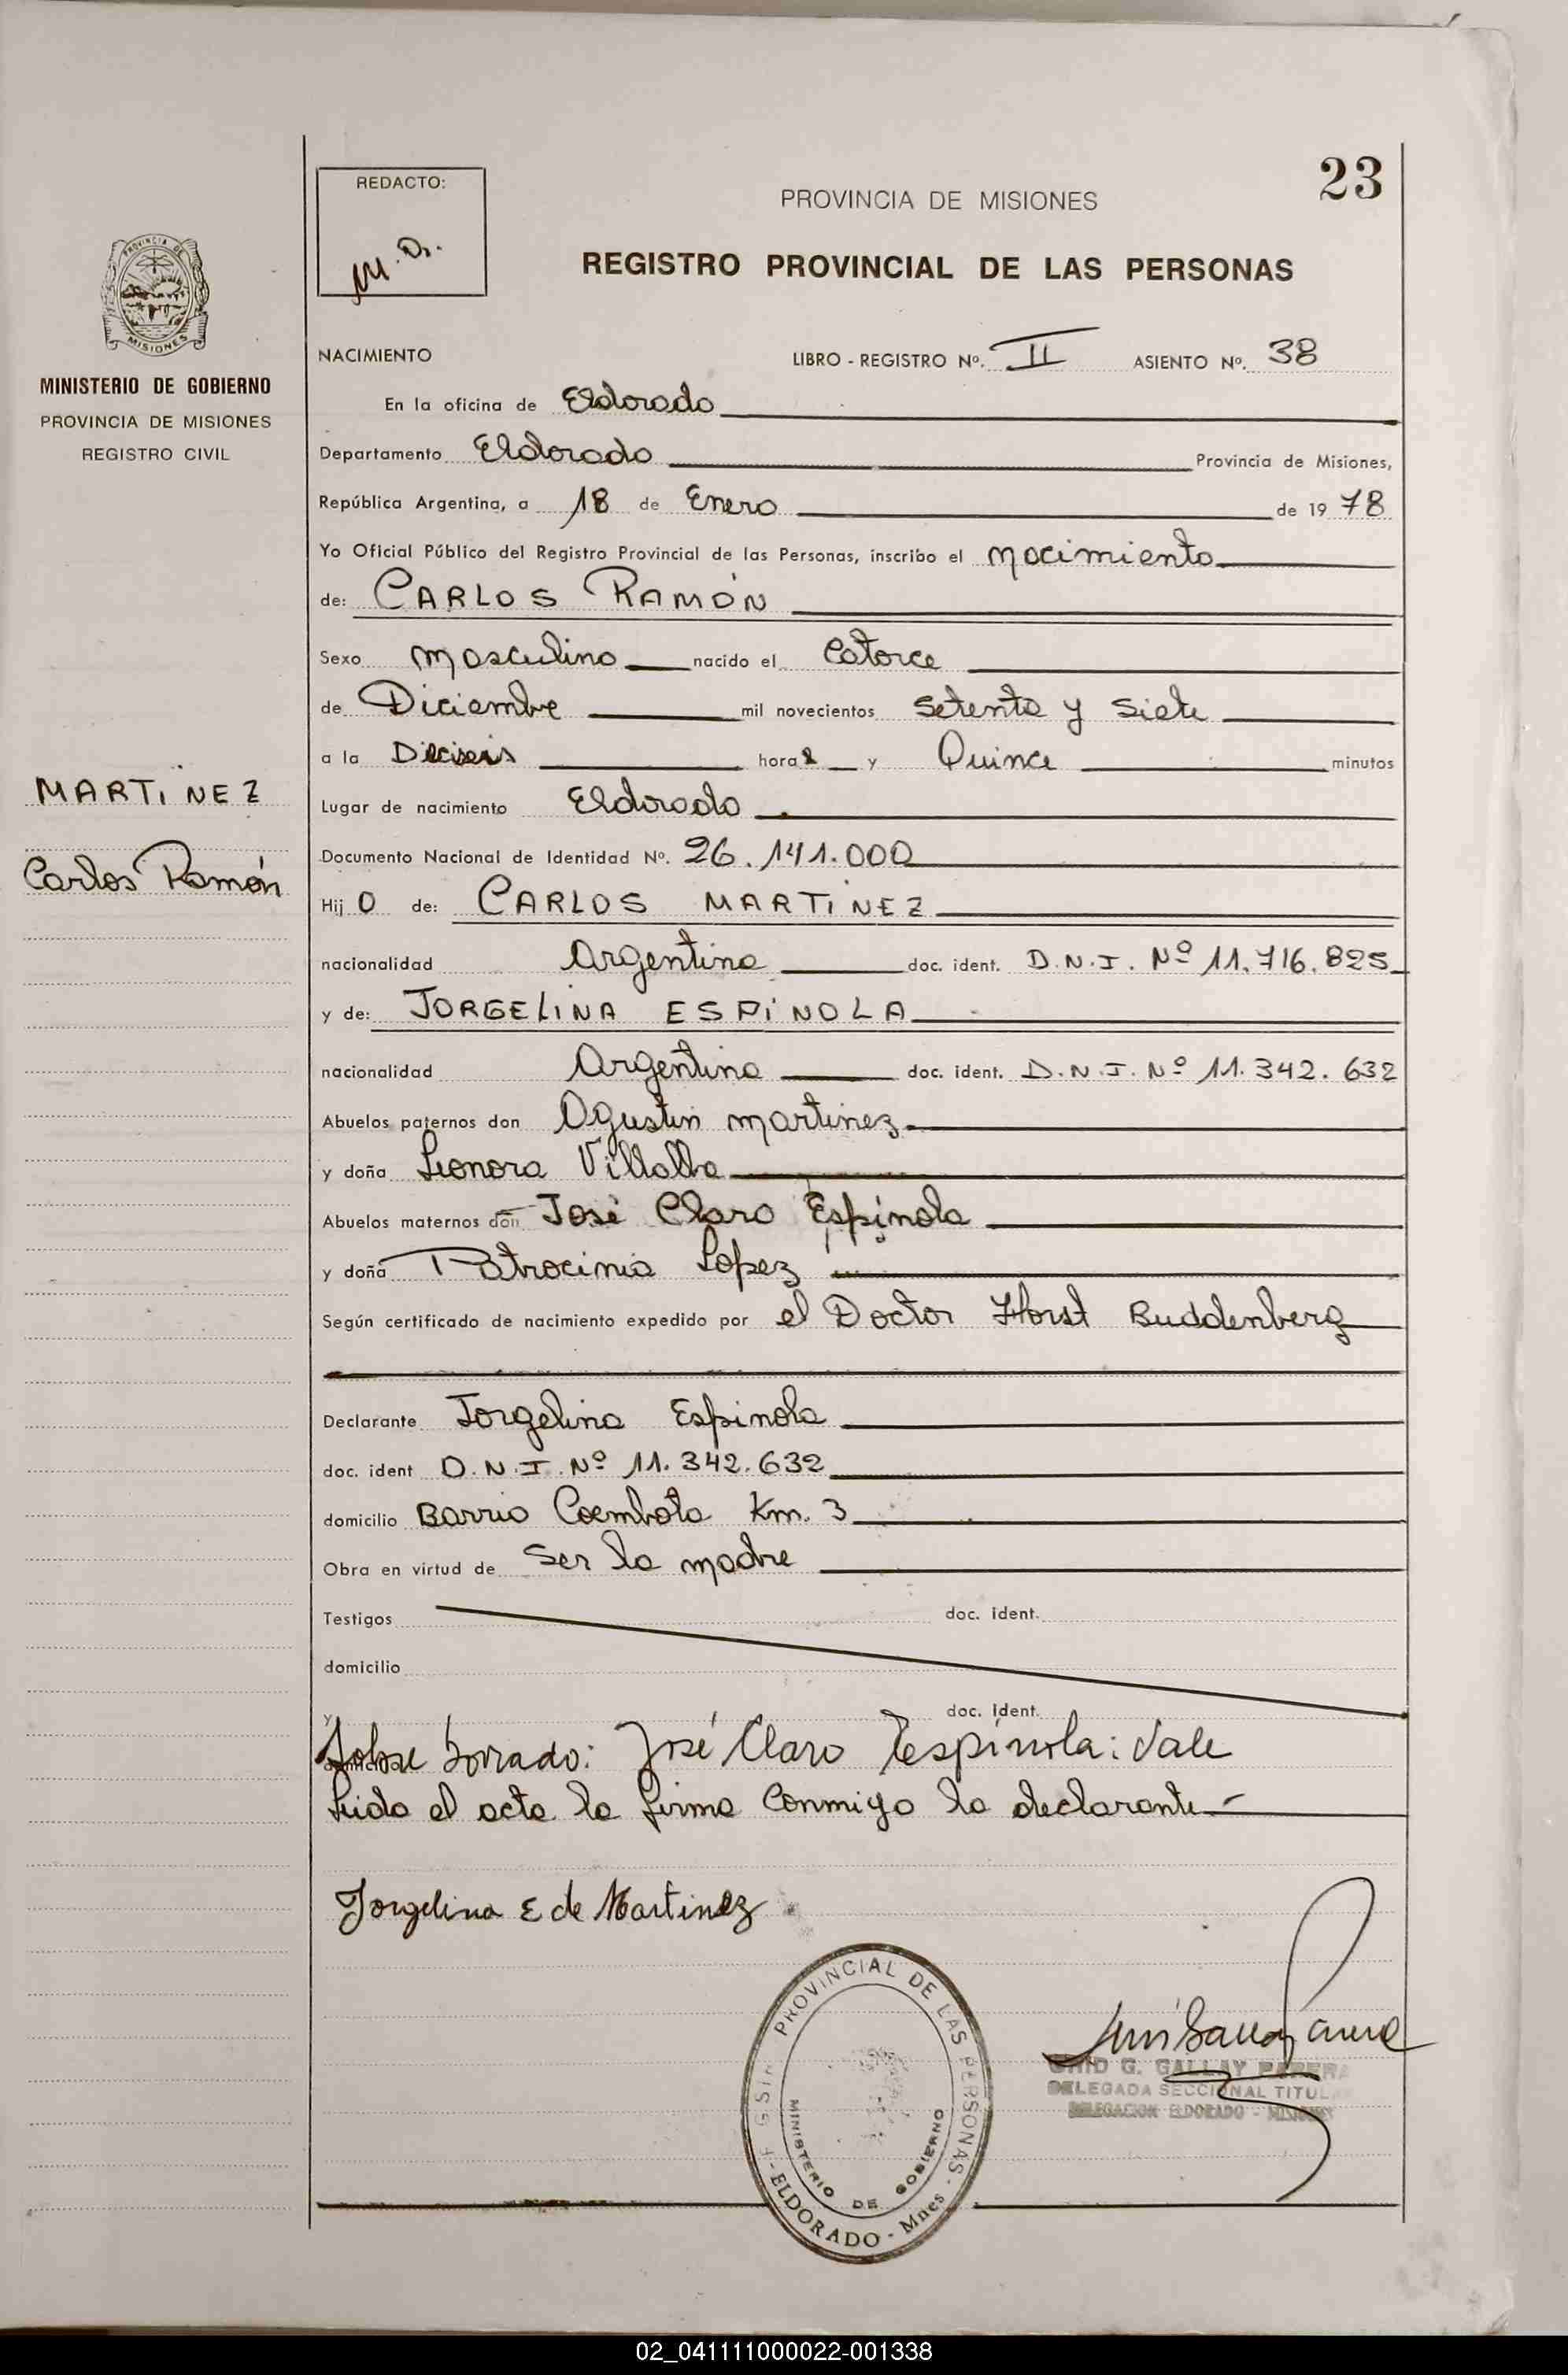 23
REDACTO:
M. D.
PROVINCIA DE MISIONES
REGISTRO PROVINCIAL DE LAS PERSONAS
PROVINCIA DE
MISIONES
MINISTERIO DE GOBIERNO
PROVINCIA DE MISIONES
REGISTRO CIVIL
NACIMIENTO LIBRO - REGISTRO Nº. II ASIENTO Nº. 38
En la oficina de Eldorado
Departamento Eldorado Provincia de Misiones,
República Argentina, a 18 de Enero de 1978
Yo Oficial Público del Registro Provincial de las Personas, inscribo el nacimiento
de: CARLOS RAMÓN
Sexo masculino nacido el Catorce
de Diciembre mil novecientos setenta y siete
a la Dieciseis horas y Quince minutos
MARTiNEZ
Carlos Ramón
Lugar de nacimiento Eldorado
Documento Nacional de Identidad Nº. 26.141.000
Hijo de: CARLOS MARTiNEZ
nacionalidad Argentina doc. ident. D.N.I. Nº 11.716.825
y de: JORGELINA ESPiNOLA
nacionalidad Argentina doc. ident. D.N.I. Nº 11.342.632
Abuelos paternos don Agustin martinez
y doña Leonora Villalba
Abuelos maternos don José Claro Espínola
y doña Patrocinia Lopez
Según certificado de nacimiento expedido por el Doctor Horst Buddenberg
Declarante Jorgelina Espinola
doc. ident D.N.I. Nº 11.342.632
domicilio Barrio Coembota Km. 3
Obra en virtud de Ser la madre
Testigos doc. ident.
domicilio
y doc. ident.
domicilio
Sobre borrado: José Claro Espínola: Vale
Leida el acta la firma Conmigo la declarante
Jorgelina E de Martinez
PROVINCIAL DE LAS PERSONAS
MINISTERIO DE GOBIERNO
ELDORADO - Mnes
G. GALLAY PARERA
DELEGADA SECCIONAL TITULAR
DELEGACION ELDORADO - MISIONES
02_041111000022-001338